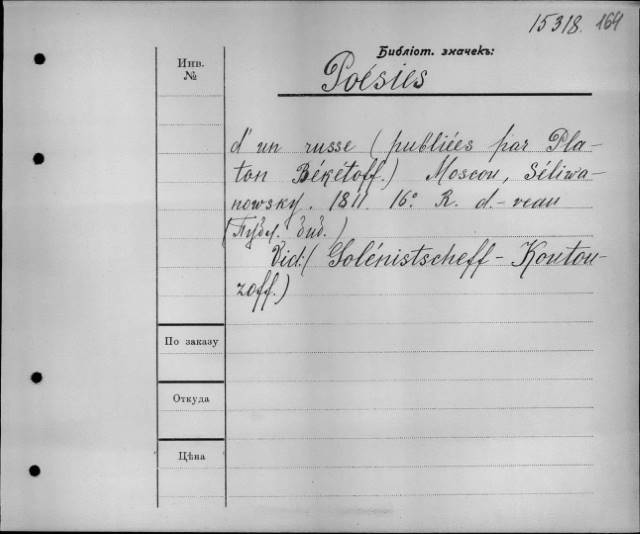 15318. 164
Библіот. значекъ:
Инв.
№
Poésies
d'un russe (publiées par Pla-
ton Békétoff.) Moscou, Séliwa-
nowsky. 1811. 16° R. d.-veau
(Публ. биб.)
Vid: (Golénistscheff - Koutou-
zoff.)
По заказу
Откуда
Цѣна